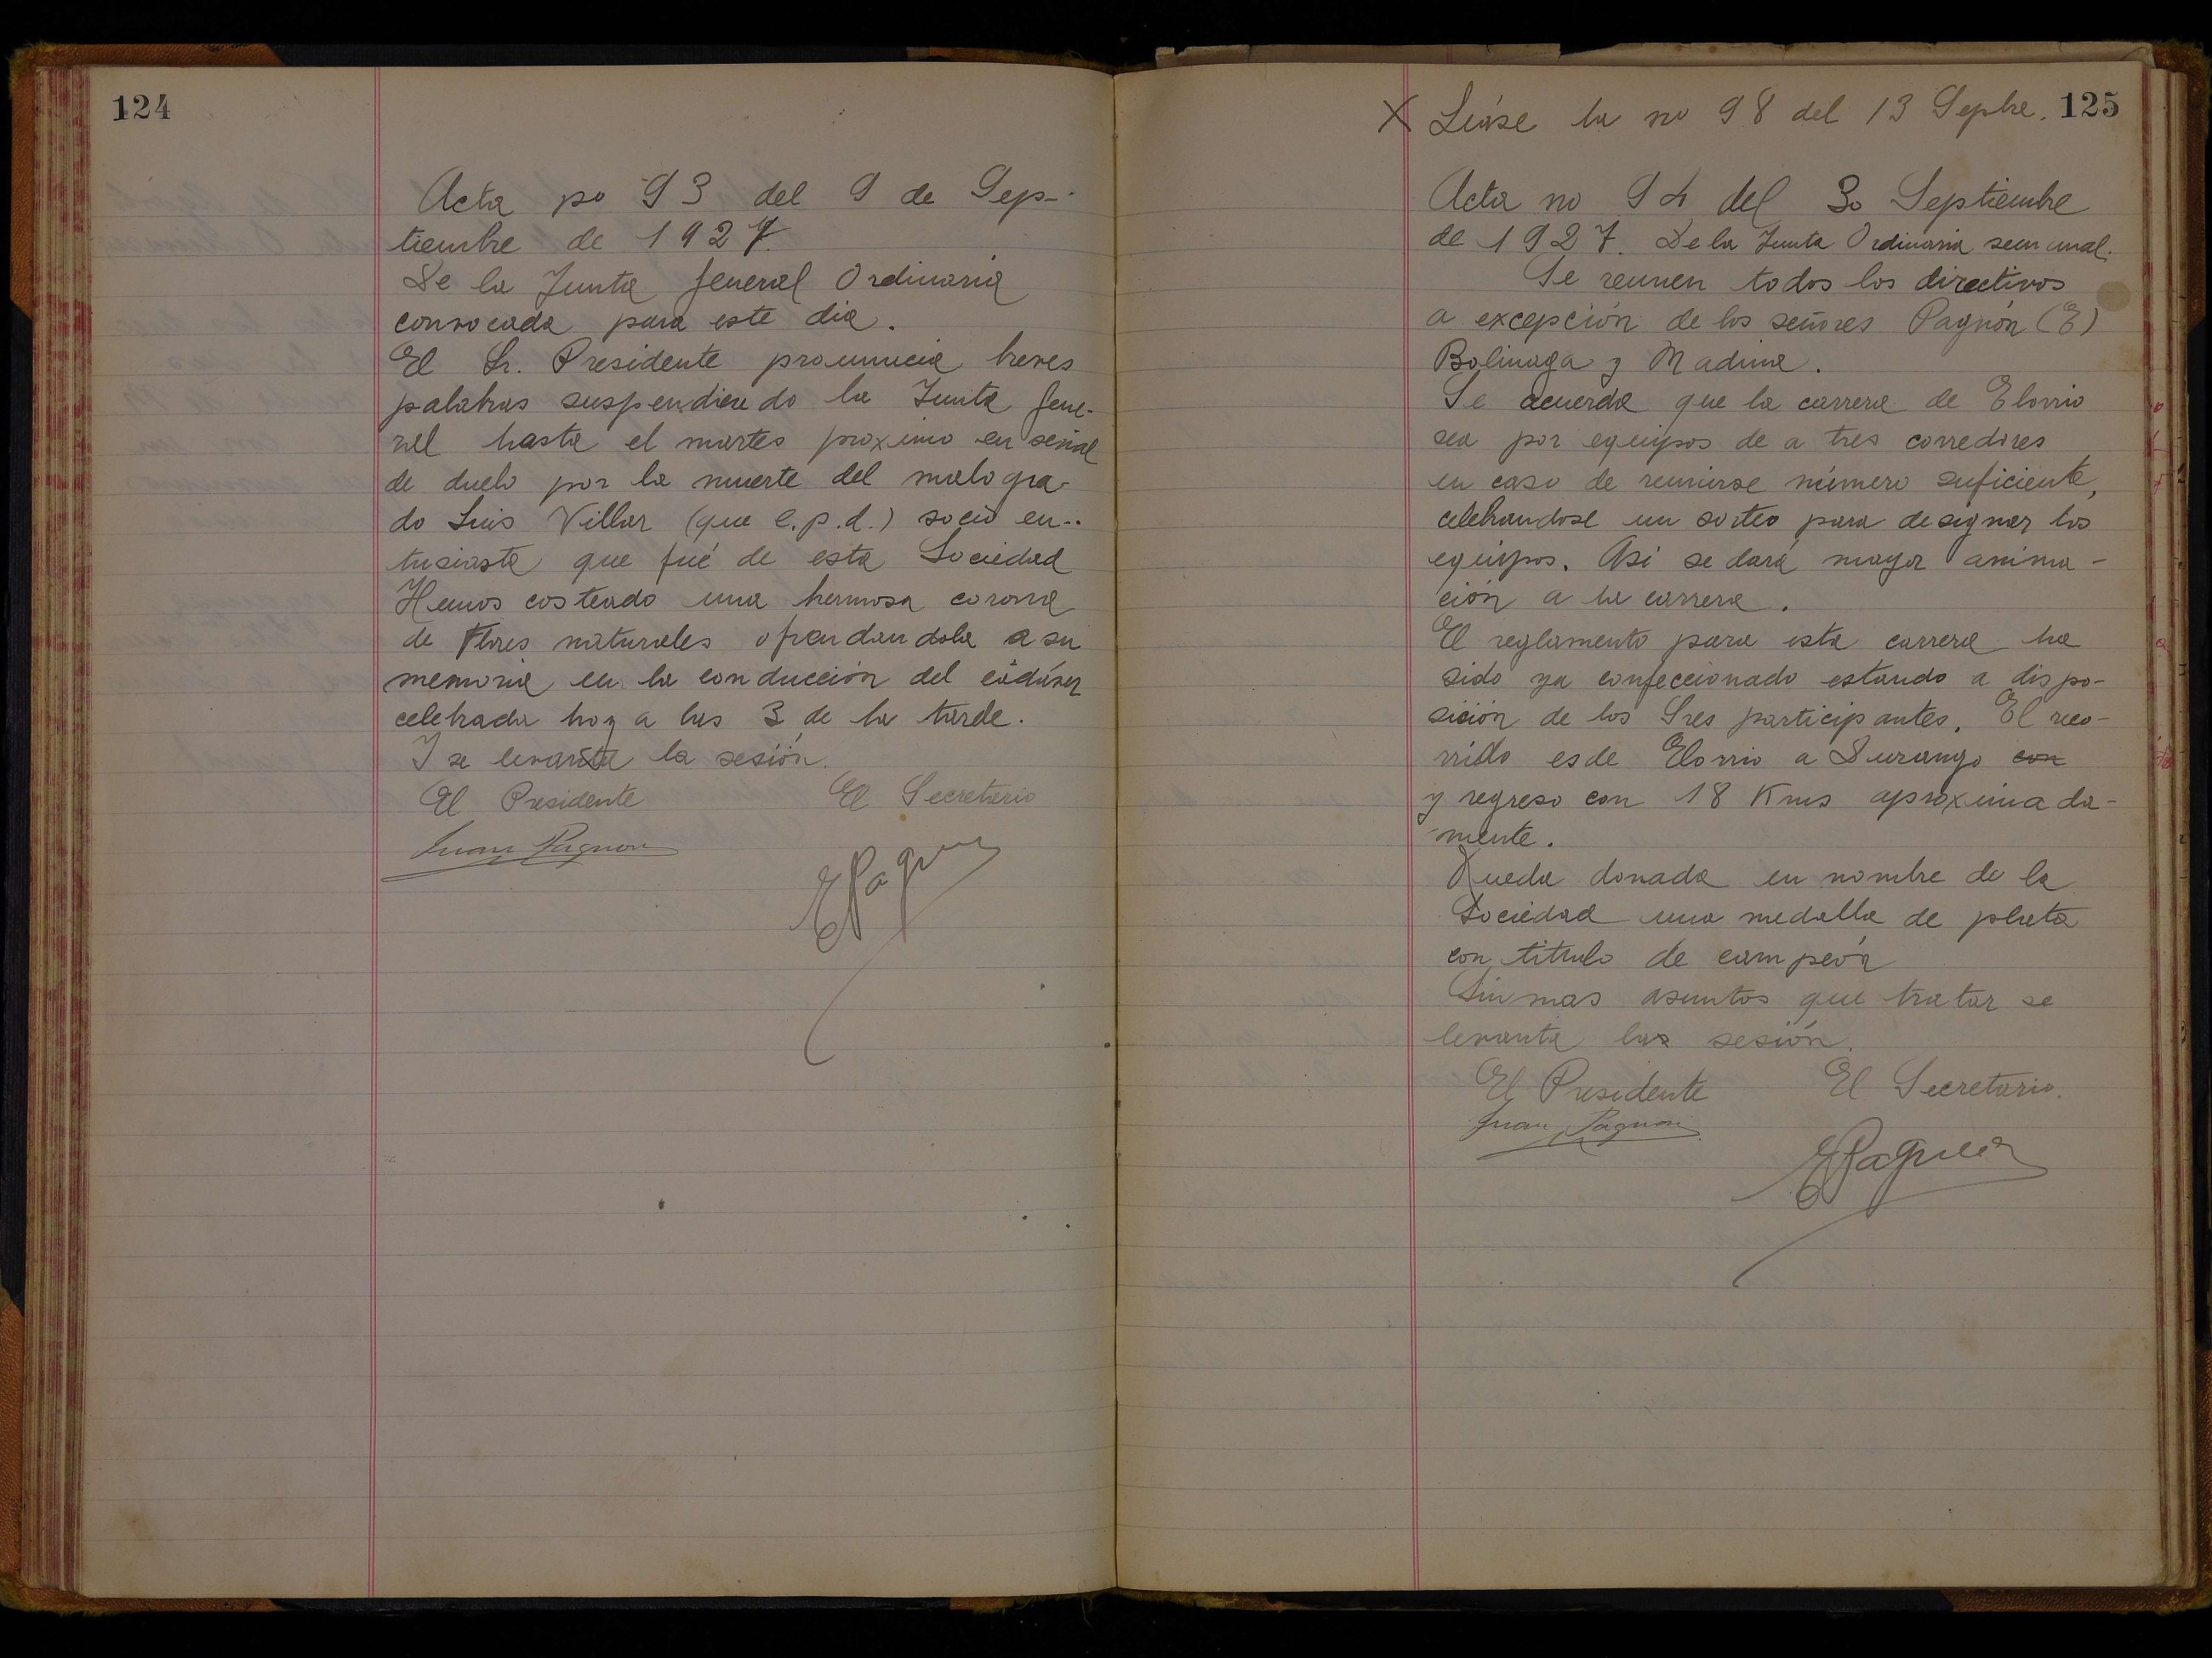 124
Acta no 93 del 9 de Sep-
tiembre de 1927.
De la Junta general Ordinaria
convocada para este dia.
El Sr. Presidente pronuncia breves
palabras suspendiendo la Junta gene-
ral hasta el martes proximo en señal
de duelo por la muerte del malogra-
do Luis Villar (que e.p.d.) socio en-
tusiasta que fué de esta Sociedad
Hemos costeado una hermosa corona
de Flores naturales ofrendandola a su
memoria en la conducción del cadáver
celebrada hoy a las 3 de la tarde.
Y se levanta la sesión.
El Presidente El Secretario
Juan Pagnon
EPagnon
X Leáse la no 98 del 13 Sepbre. 125
Acta no 94 del 30 Septiembre
de 1927. De la Junta Ordinaria semanal.
Se reunen todos los directivos
a excepción de los señores Pagnón (E)
Bolinaga y Madina.
Se acuerda que la carrera de Elorrio
sea por equipos de a tres corredores
en caso de reunirse número suficiente,
celebrandose un sorteo para designar los
equipos. Asi se dará mayor anima-
ción a la carrera.
El reglamento para esta carrera ha
sido ya confeccionado estando a dispo-
sición de los Sres participantes. El reco-
rrido es de Elorrio a Durango con
y regreso con 18 Kms aproximada-
mente.
Queda donada en nombre de la
Sociedad una medalla de plata
con titulo de campeón
Sin mas asuntos que tratar se
levanta las sesión.
El Presidente El Secretario.
Juan Pagnon
EPagnon